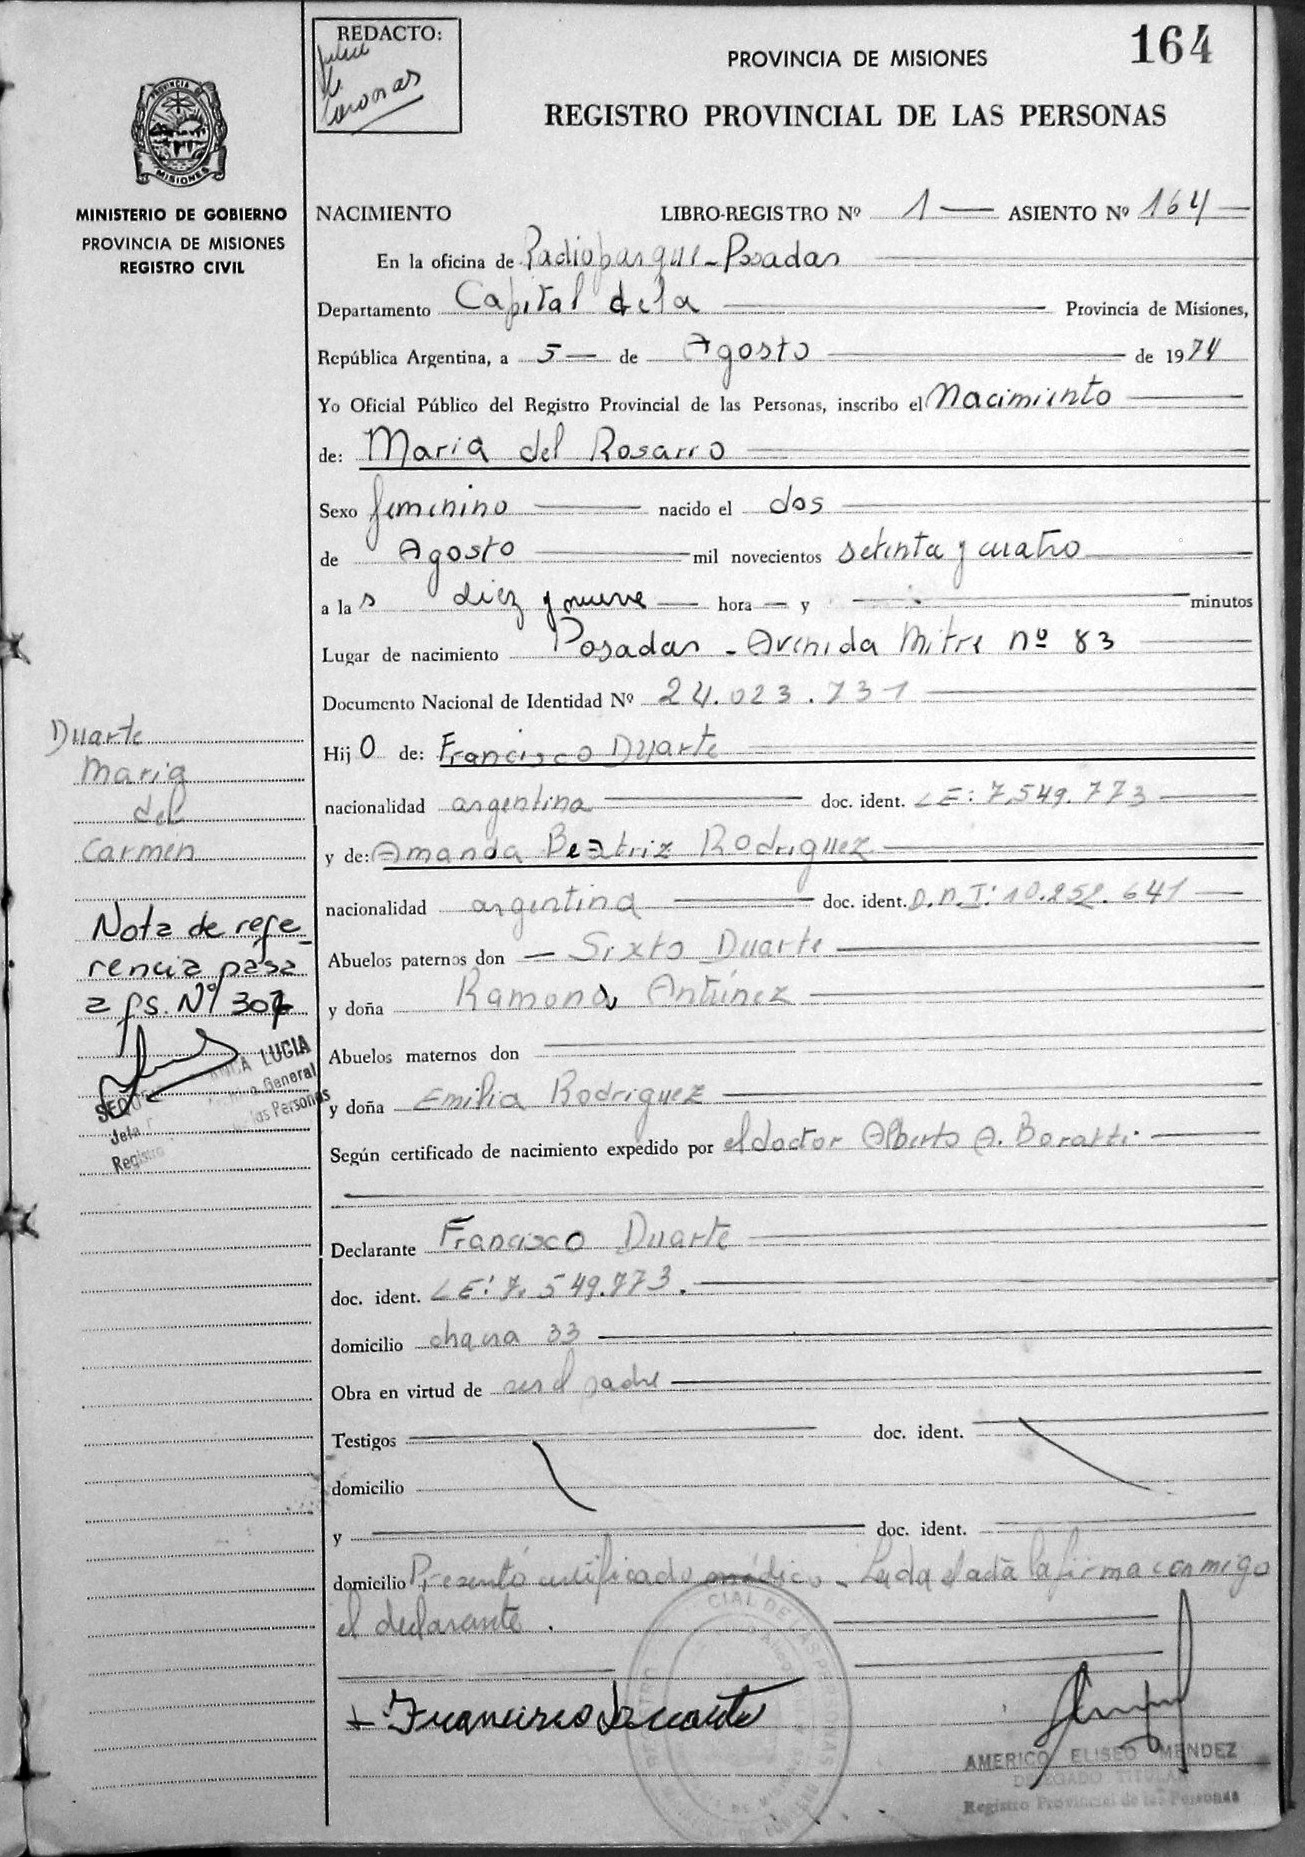 REDACTO:
PROVINCIA DE MISIONES
164
REGISTRO PROVINCIAL DE LAS PERSONAS
PROVINCIA DE
MISIONES
MINISTERIO DE GOBIERNO
PROVINCIA DE MISIONES
REGISTRO CIVIL
NACIMIENTO LIBRO-REGISTRO Nº 1 ASIENTO Nº 164
En la oficina de Radioparque - Posadas
Departamento Capital de la Provincia de Misiones,
República Argentina, a 5 de Agosto de 1974
Yo Oficial Público del Registro Provincial de las Personas, inscribo el Nacimiento
de: Maria del Rosario
Sexo femenino nacido el dos
de Agosto mil novecientos setenta y cuatro
a las diez y nueve hora y minutos
Lugar de nacimiento Posadas - Avenida Mitre nº 83
Documento Nacional de Identidad Nº 24.023.731
Hijo de: Francisco Duarte
nacionalidad argentina doc. ident. LE: 7.549.773
y de: Amanda Beatriz Rodriguez
nacionalidad argentina doc. ident. D.N.I: 10.252.641
Abuelos paternos don Sixto Duarte
y doña Ramona Antúnez
Abuelos maternos don
y doña Emilia Rodriguez
Según certificado de nacimiento expedido por el doctor Alberto A. Baratti
Declarante Francisco Duarte
doc. ident. LE: 7.549.773.
domicilio chacra 33
Obra en virtud de ser el padre
Testigos doc. ident.
domicilio
y doc. ident.
domicilio Presentó certificado médico - Leida el acta la firma conmigo
el declarante.
Francisco Duarte
AMERICO ELISEO MENDEZ
DELEGADO TITULAR
Registro Provincial de las Personas
Duarte
Maria
del
Carmen
Nota de refe-
rencia pasa
a fs. Nº 307
LUCIA
General
las Personas
Jefa
Registro